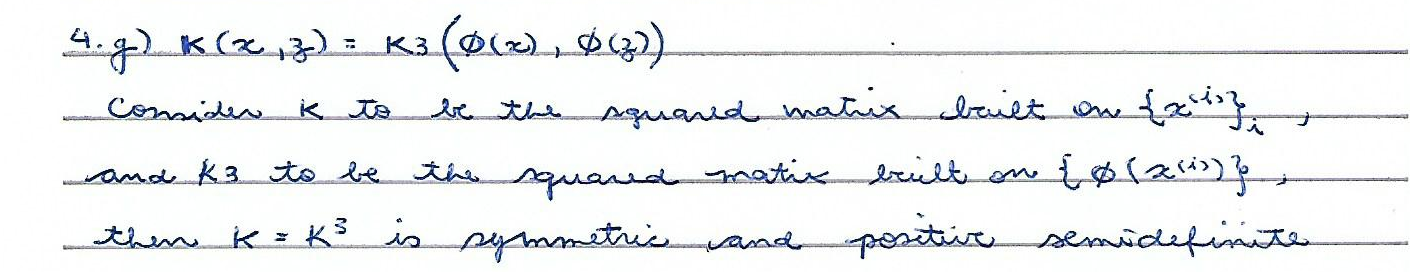 4.g) K(x,z) = K3(ϕ(x), ϕ(z))
Consider K to be the squared matrix built on {x⁽ⁱ⁾}ᵢ,
and K3 to be the squared matix built on {ϕ(x⁽ⁱ⁾)},
then K = K³ is symmetric and positive semidefinite